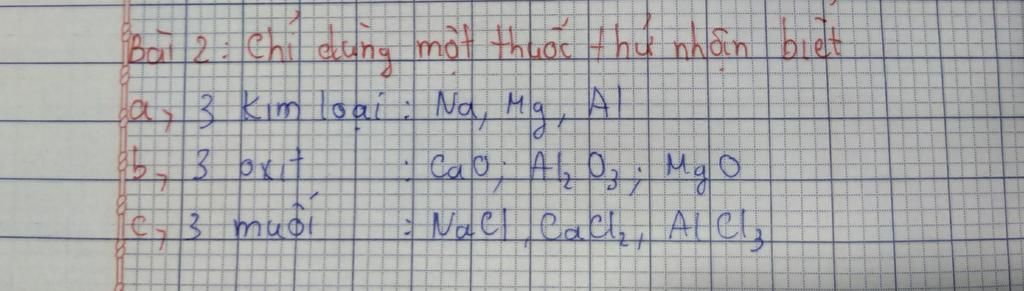 Bài 2: Chỉ dùng một thuốc thử nhận biết
a, 3 kim loại: Na, Mg, Al
b, 3 oxit : CaO; Al₂O₃; MgO
c, 3 muối : NaCl, CaCl₂, AlCl₃